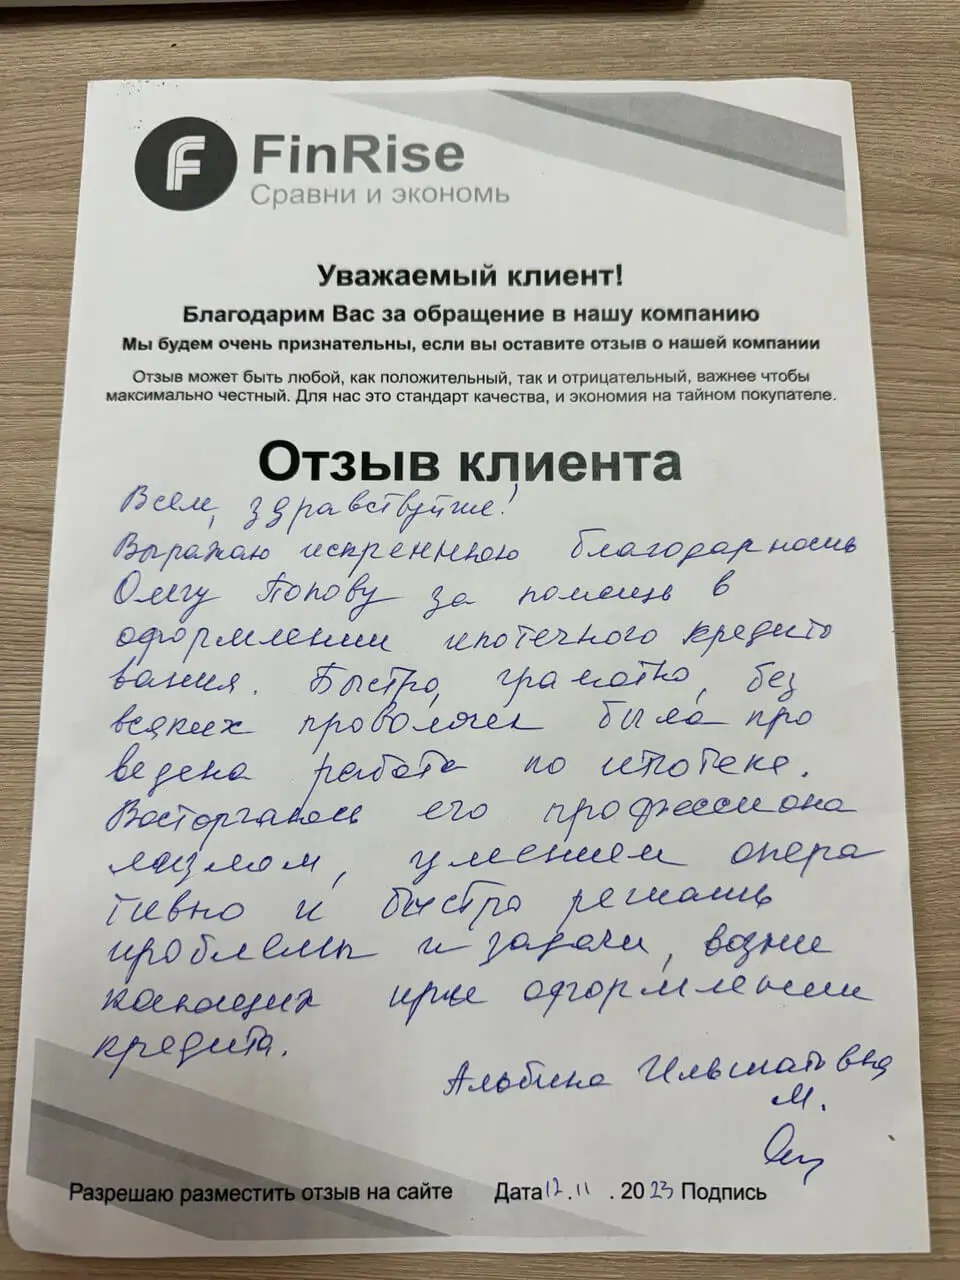 FinRise
Сравни и экономь
Уважаемый клиент!
Благодарим Вас за обращение в нашу компанию
Мы будем очень признательны, если вы оставите отзыв о нашей компании
Отзыв может быть любой, как положительный, так и отрицательный, важнее чтобы
максимально честный. Для нас это стандарт качества, и экономия на тайном покупателе.
Отзыв клиента
Всем, здравствуйте!
Выражаю искреннюю благодарность
Олегу Попову за помощь в
оформлении ипотечного кредито
вания. Быстро, грамотно, без
всяких проволочек была про
ведена работа по ипотеке.
Восторгаюсь его профессиона
лизмом, умением опера
тивно и быстро решать
проблемы и задачи, возни
кающих при оформлении
кредита.
Альбина Ильшатовна
М.
Разрешаю разместить отзыв на сайте Дата 12.11 . 2023 Подпись